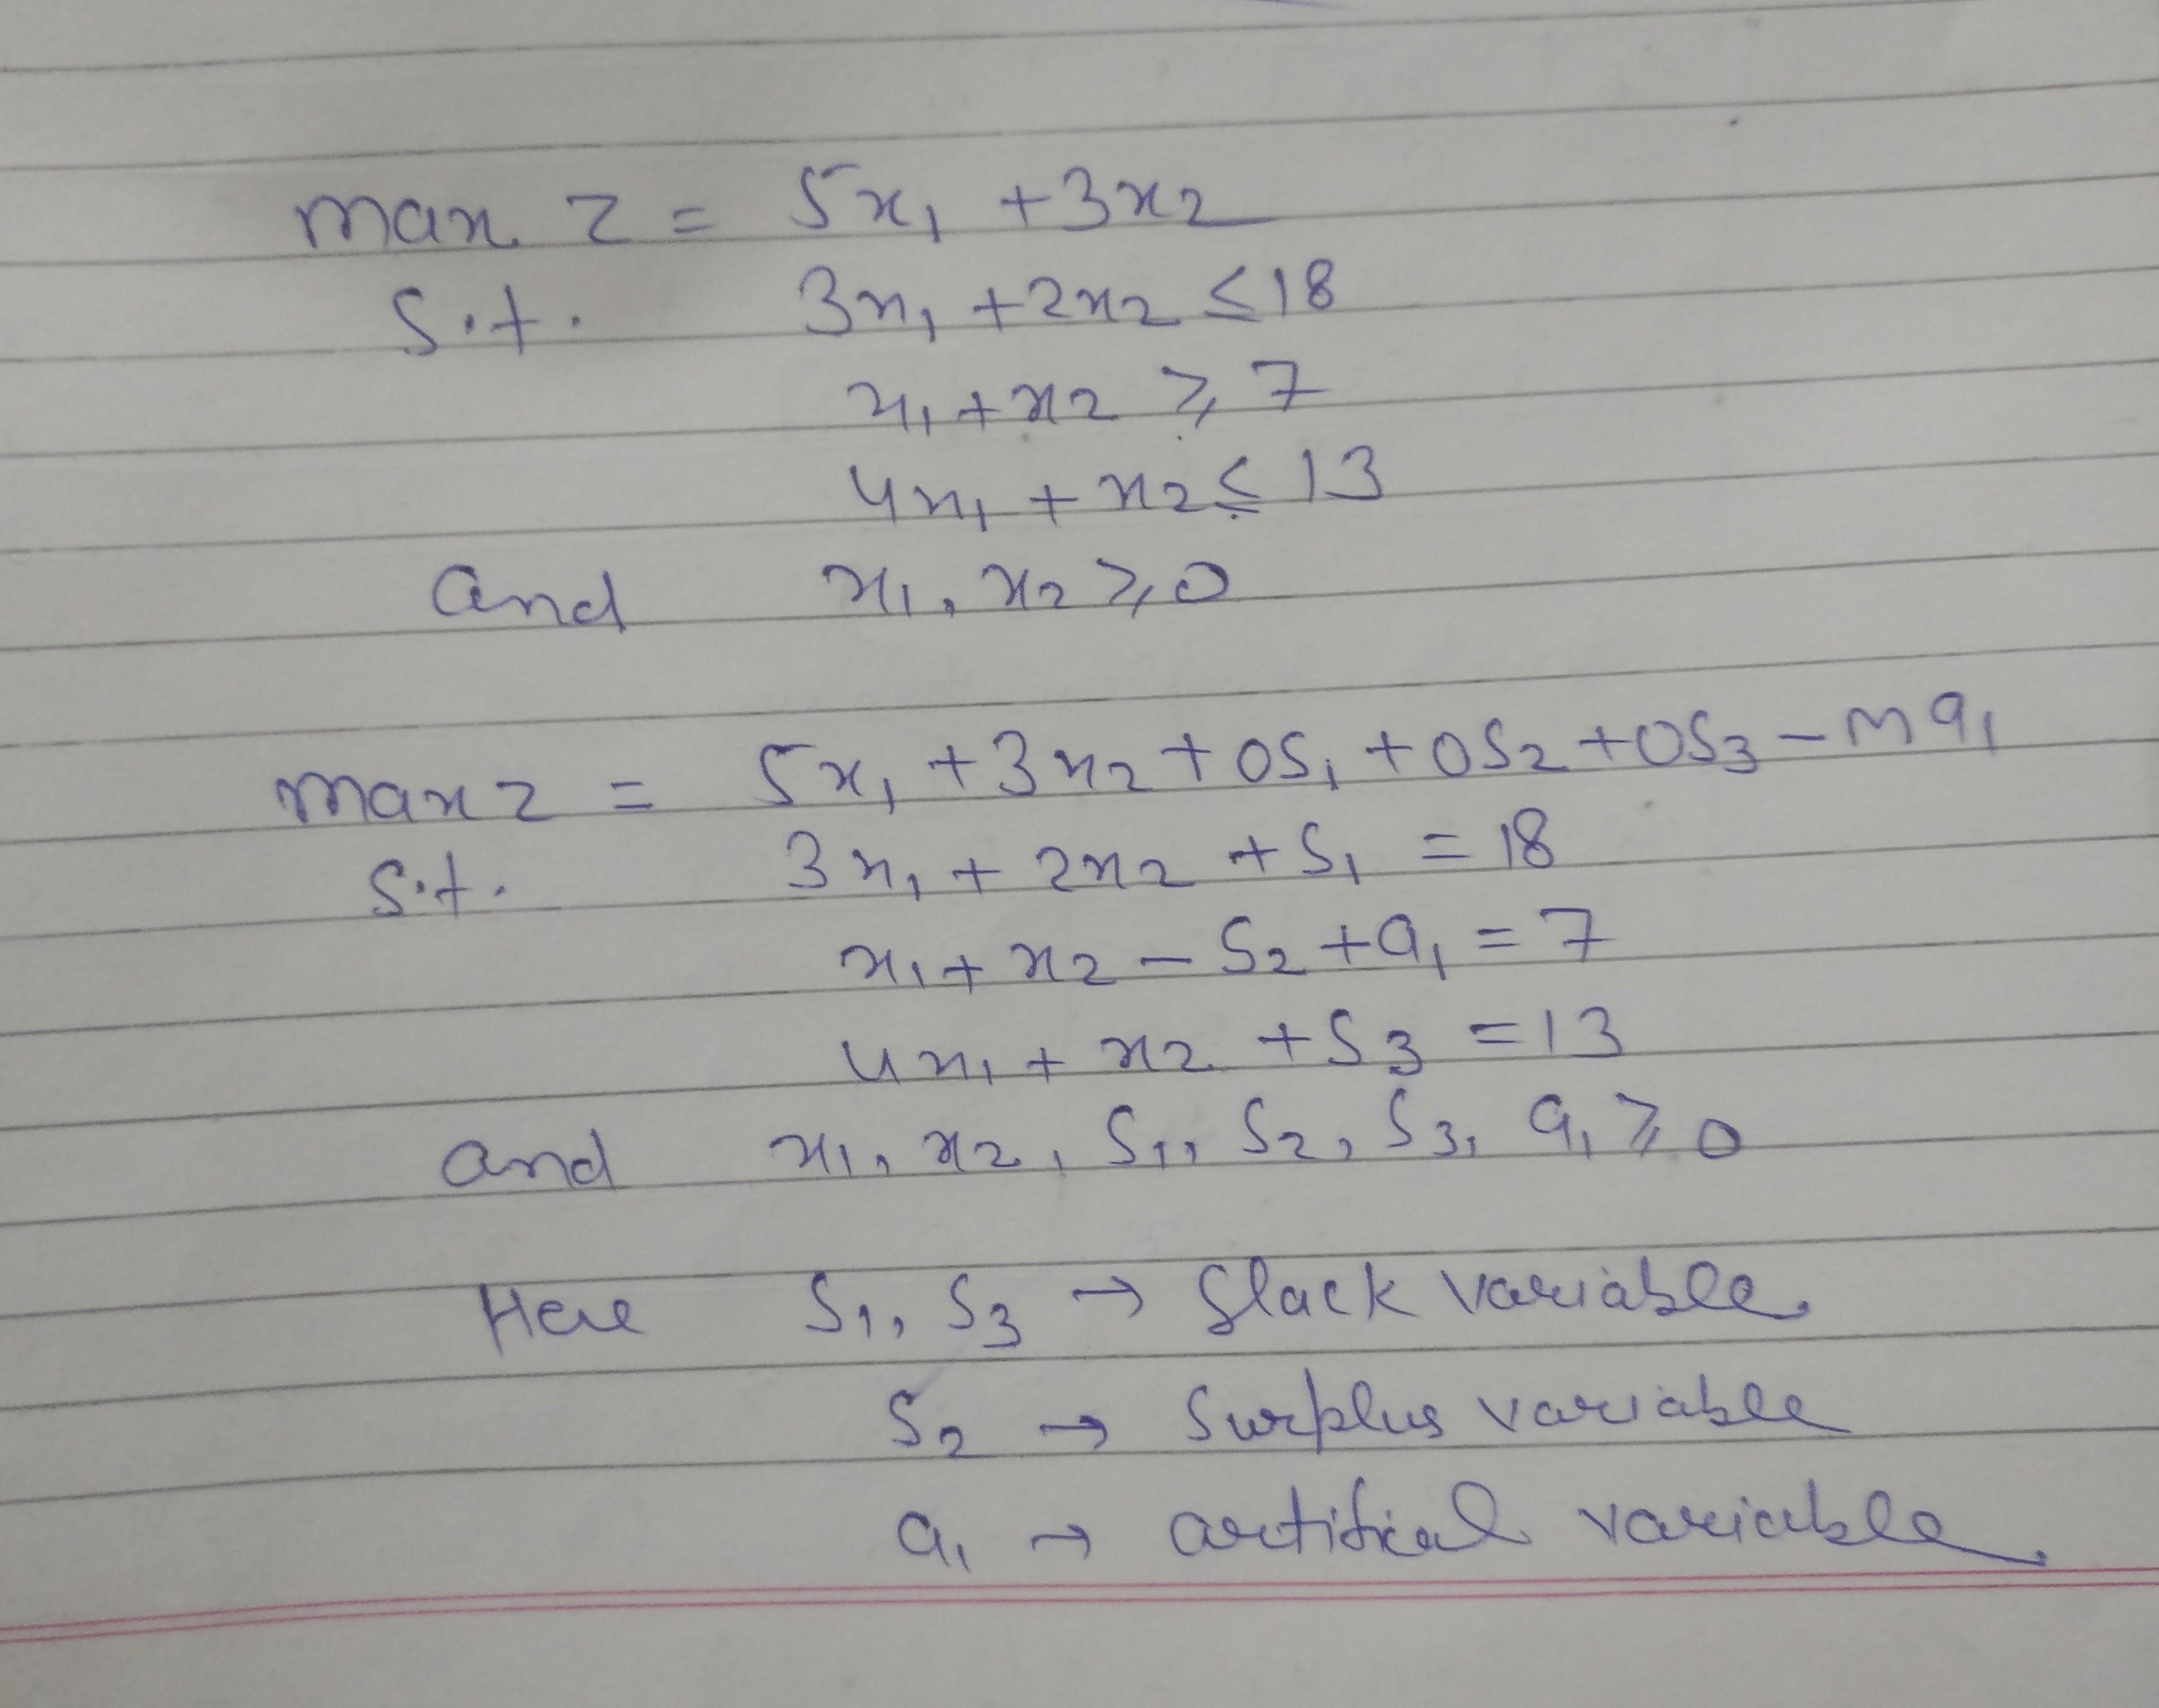 max z = 5x₁ + 3x₂
S.t. 3x₁ + 2x₂ ≤ 18
x₁ + x₂ ≥ 7
4x₁ + x₂ ≤ 13
and x₁, x₂ ≥ 0
max z = 5x₁ + 3x₂ + 0S₁ + 0S₂ + 0S₃ - Ma₁
S.t. 3x₁ + 2x₂ + S₁ = 18
x₁ + x₂ - S₂ + a₁ = 7
4x₁ + x₂ + S₃ = 13
and x₁, x₂, S₁, S₂, S₃, a₁ ≥ 0
Here S₁, S₃ → Slack variable
S₂ → Surplus variable
a₁ → artifical variable